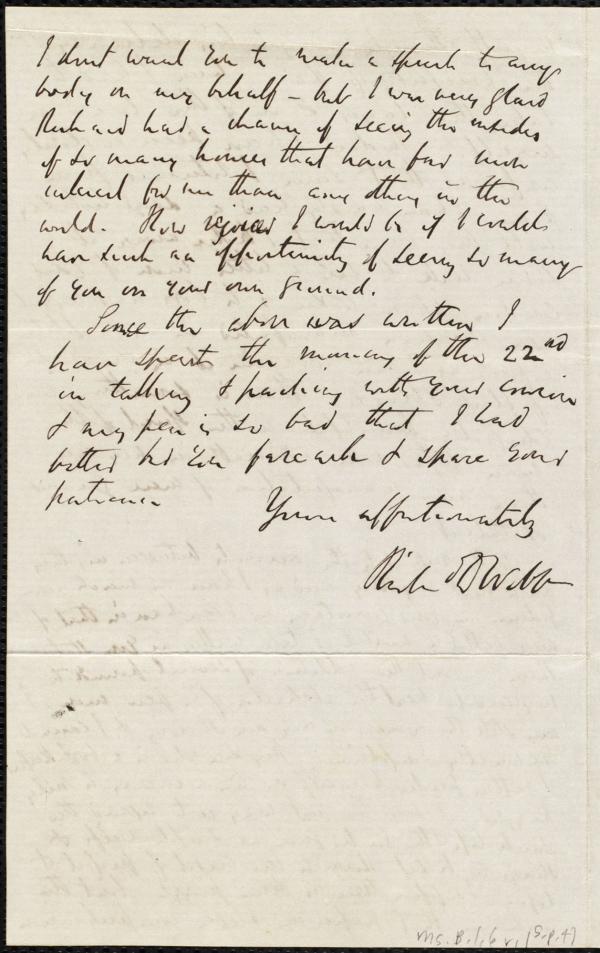 I dont want you to make a speech to any
body on my behalf – but I was very glad
Richard had a chance of seeing the insides
of so many houses that have far more
interest for me than any others in the
world. How rejoiced I would be if I could
have such an opportunity of seeing so many
of you on your own ground.
Since the above was written I
have spent the morning of the 22nd
in talking & packing with your cousin
& my pen is so bad that I had
better bid you farewell & spare your
patience.
Yours affectionately
Rich D Webb
Ms. B.1.6 v.